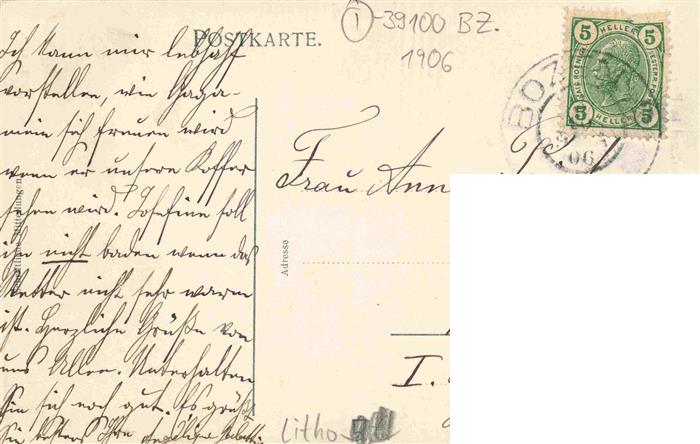 POSTKARTE.
1 -39100 BZ.
1906
5 HELLER 5
5 HELLER 5
BOZ
06
Ich kann mir lebhaft
vorstellen, wie Gaga-
mein sich freuen wird
wenn er unsere Koffer
sehen wird. Josefine soll
ihn nicht baden wenn das
Wetter nicht sehr warm
ist. Herzliche Grüße von
uns Allen. Unterhalten
Sie sich noch gut. Es grüßt
Sie bestens Ihre
Adresse
Frau Ann
I.
Litho